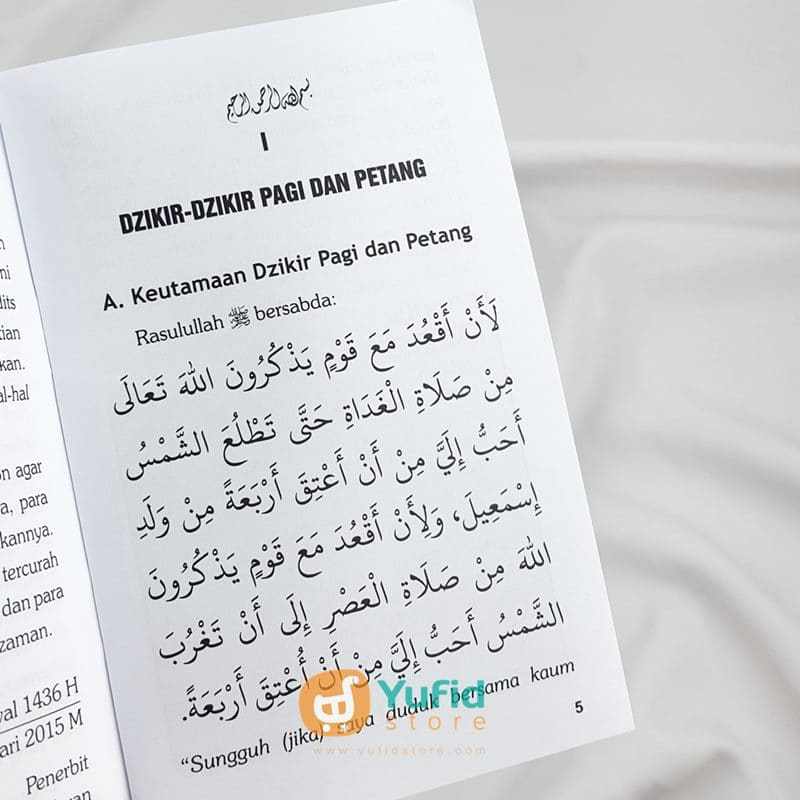 بسم الله الرحمن الرحيم
I
DZIKIR-DZIKIR PAGI DAN PETANG
A. Keutamaan Dzikir Pagi dan Petang
Rasulullah ﷺ bersabda:
لَأَنْ أَقْعُدَ مَعَ قَوْمٍ يَذْكُرُونَ اللهَ تَعَالَى
مِنْ صَلَاةِ الْغَدَاةِ حَتَّى تَطْلُعَ الشَّمْسُ
أَحَبُّ إِلَيَّ مِنْ أَنْ أَعْتِقَ أَرْبَعَةً مِنْ وَلَدِ
إِسْمَعِيلَ، وَلِأَنْ أَقْعُدَ مَعَ قَوْمٍ يَذْكُرُونَ
اللهَ مِنْ صَلَاةِ الْعَصْرِ إِلَى أَنْ تَغْرُبَ
الشَّمْسُ أَحَبُّ إِلَيَّ مِنْ أَنْ أُعْتِقَ أَرْبَعَةً.
"Sungguh (jika) saya duduk bersama kaum
5
on agar
a, para
kannya.
tercurah
dan para
zaman.
al 1436 H
ari 2015 M
Penerbit
Yufid
store
www.yufidstore.com